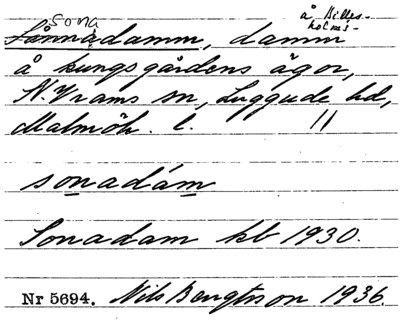 Sona å Billes-
holms-
Sånnadamm, damm
å kungsgårdens ägor,
N. Vrams sn, Luggude hd,
Malmöh. l. "
sonadám
Sonadam kb 1930.
Nr 5694. Nils Bengtsson 1936.